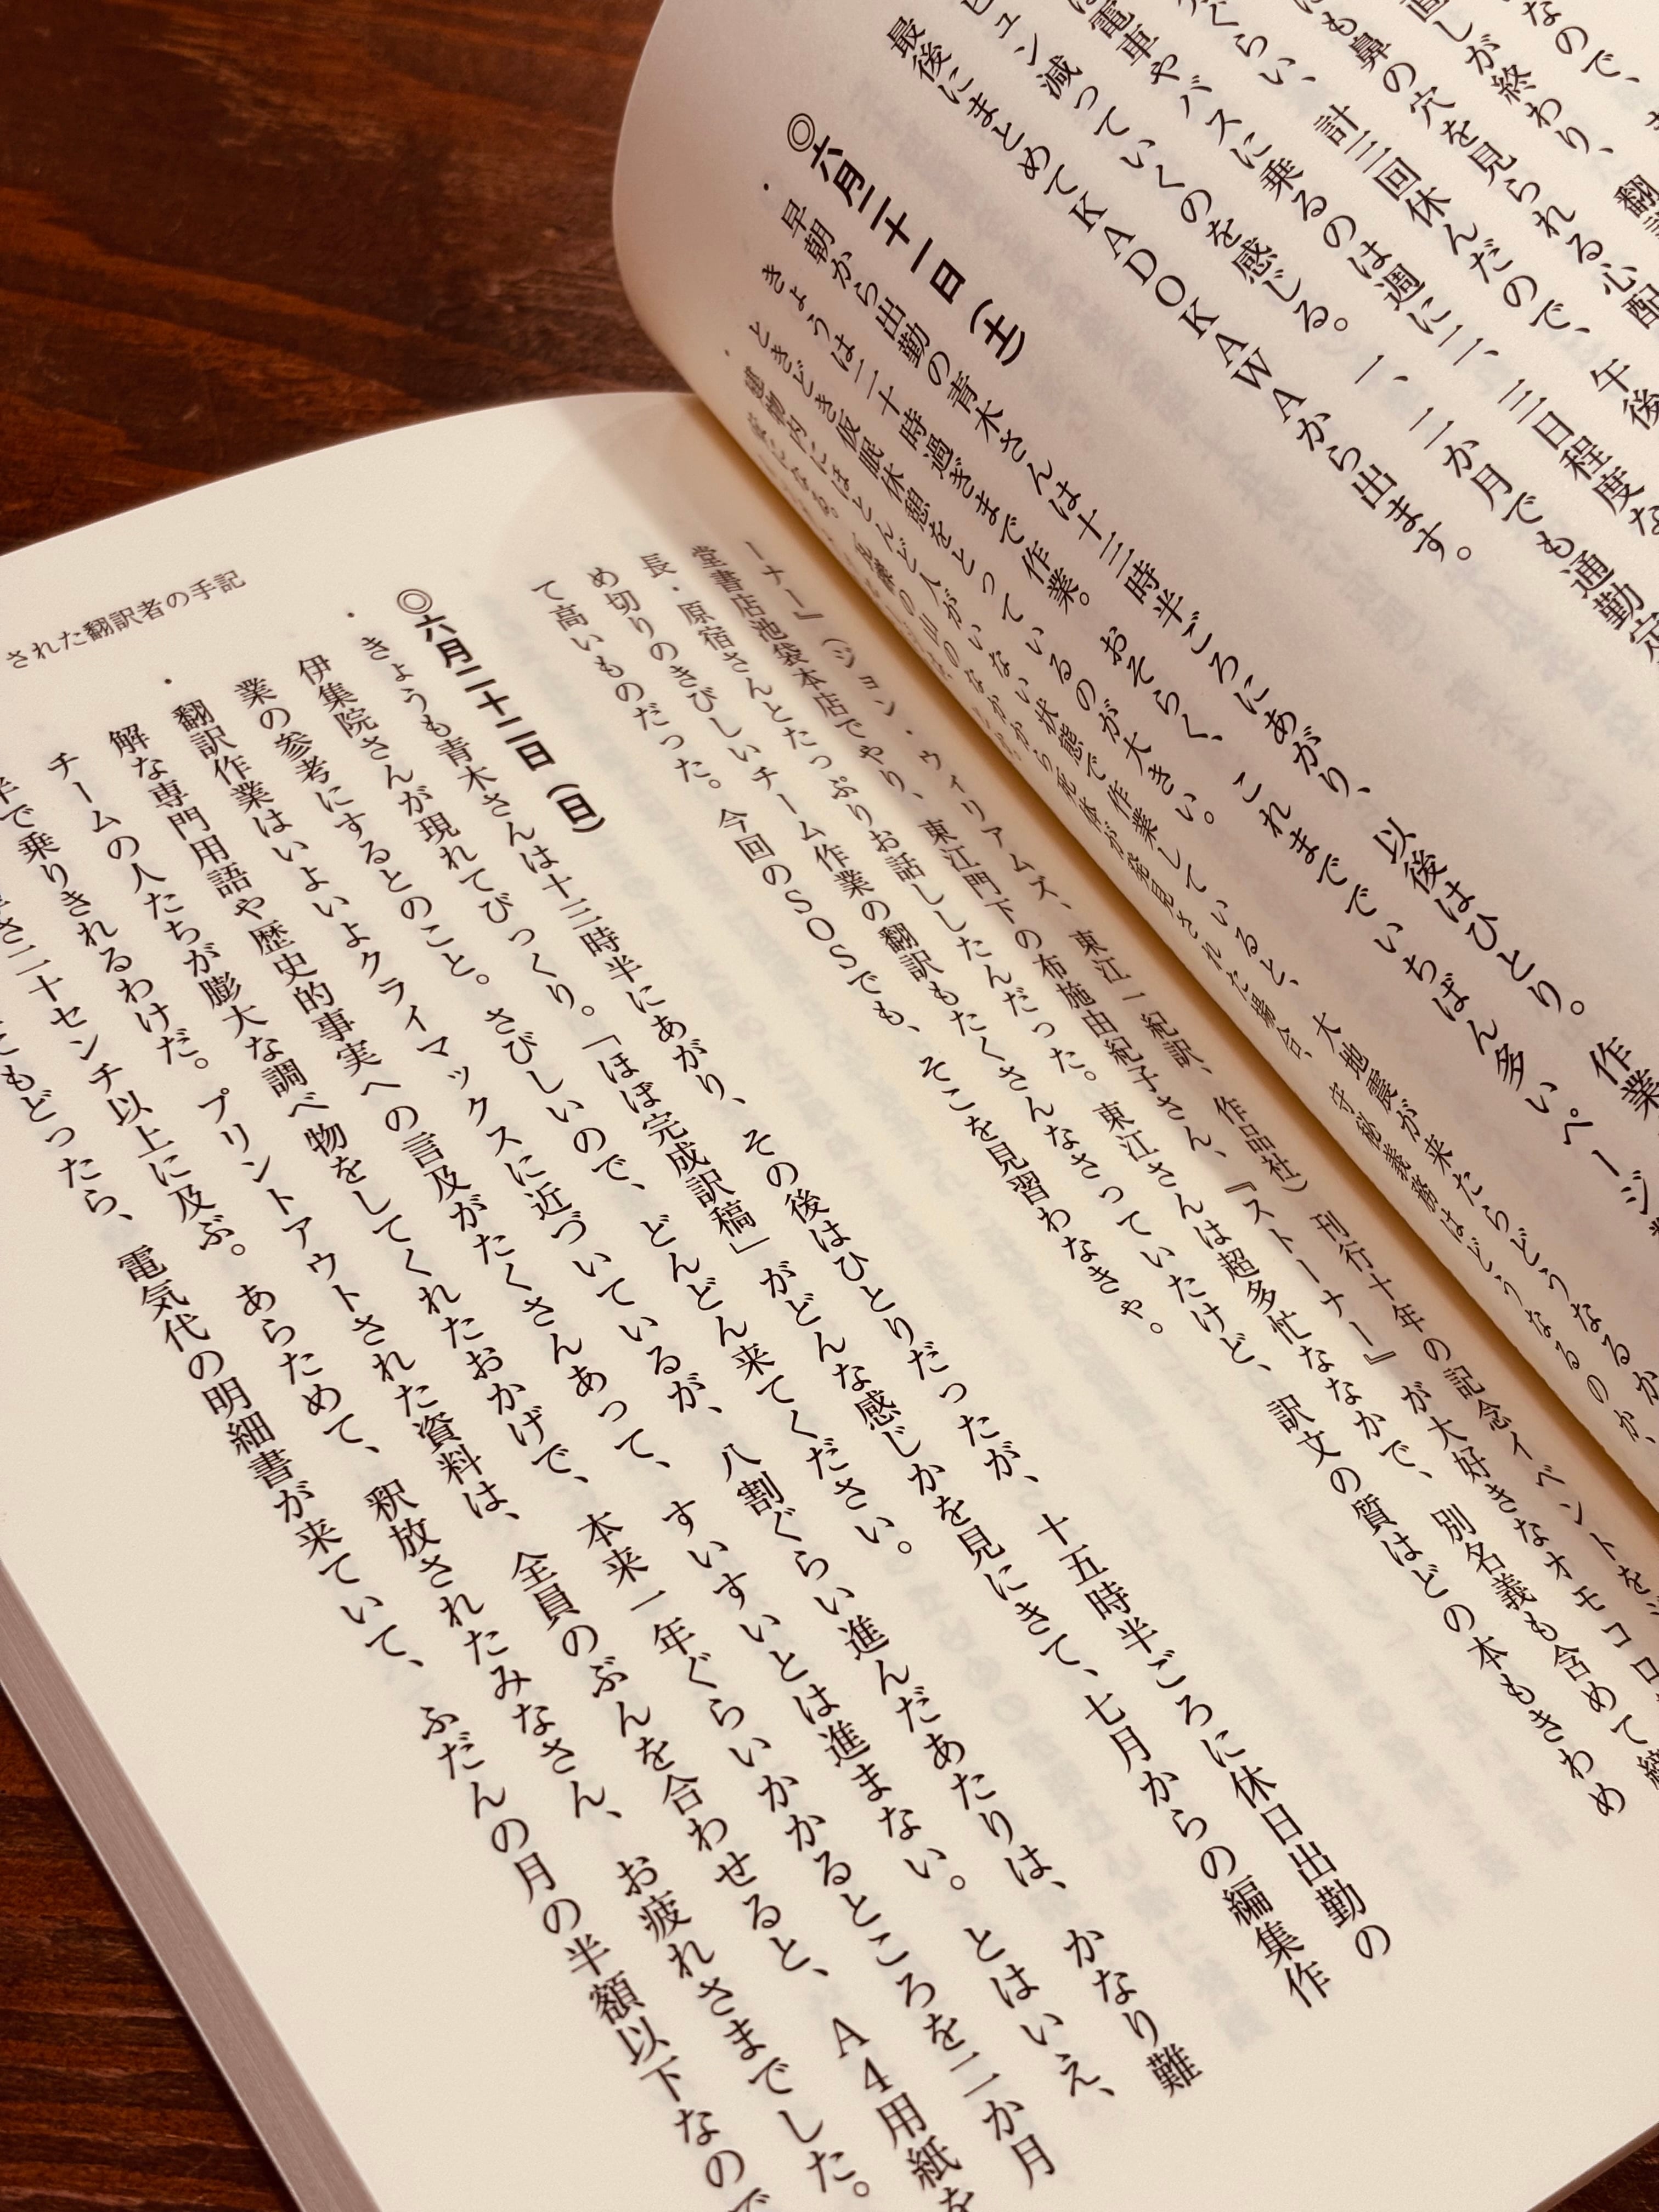 なので、
直しが終わり、翻訳
も鼻の穴を見られる心配
ぐらい、計三回休んだので、午後
電車やバスに乗るのは週に二、三日程度な
ュン減っていくのを感じる。一、二か月でも通勤定
最後にまとめてKADOKAWAから出ます。
◎六月二十一日（土）
・早朝から出勤の青木さんは十三時半ごろにあがり、以後はひとり。作業
きょうは二十時過ぎまで作業。おそらく、これまででいちばん多いページ
ときどき仮眠休憩をとっているのが大きい。
・建物内にほとんど人がいない状態で作業していると、大地震が来たらどうなるか
死体が発見された場合、守秘義務はどうなるのか、
ーナー』（ジョン・ウィリアムズ、東江一紀訳、作品社）刊行十年の記念イベントを
堂書店池袋本店でやり、東江門下の布施由紀子さん、『ストーナー』が大好きなオモコロ
長・原宿さんとたっぷりお話ししたんだった。東江さんは超多忙ななかで、別名義も含めて締
め切りのきびしいチーム作業の翻訳もたくさんなさっていたけど、訳文の質はどの本もきわめ
て高いものだった。今回のSOSでも、そこを見習わなきゃ。
◎六月二十二日（日）
・きょうも青木さんは十三時半にあがり、その後はひとりだったが、十五時半ごろに休日出勤の
伊集院さんが現れてびっくり。「ほぼ完成訳稿」がどんな感じかを見にきて、七月からの編集作
業の参考にするとのこと。さびしいので、どんどん来てください。
・翻訳作業はいよいよクライマックスに近づいているが、八割ぐらい進んだあたりは、かなり難
解な専門用語や歴史的事実への言及がたくさんあって、すいすいとは進まない。とはいえ、
チームの人たちが膨大な調べ物をしてくれたおかげで、本来一年ぐらいかかるところを二か月
半で乗りきれるわけだ。プリントアウトされた資料は、全員のぶんを合わせると、A4用紙を
さ二十センチ以上に及ぶ。あらためて、釈放されたみなさん、お疲れさまでした。
もどったら、電気代の明細書が来ていて、ふだんの月の半額以下なので
された翻訳者の手記